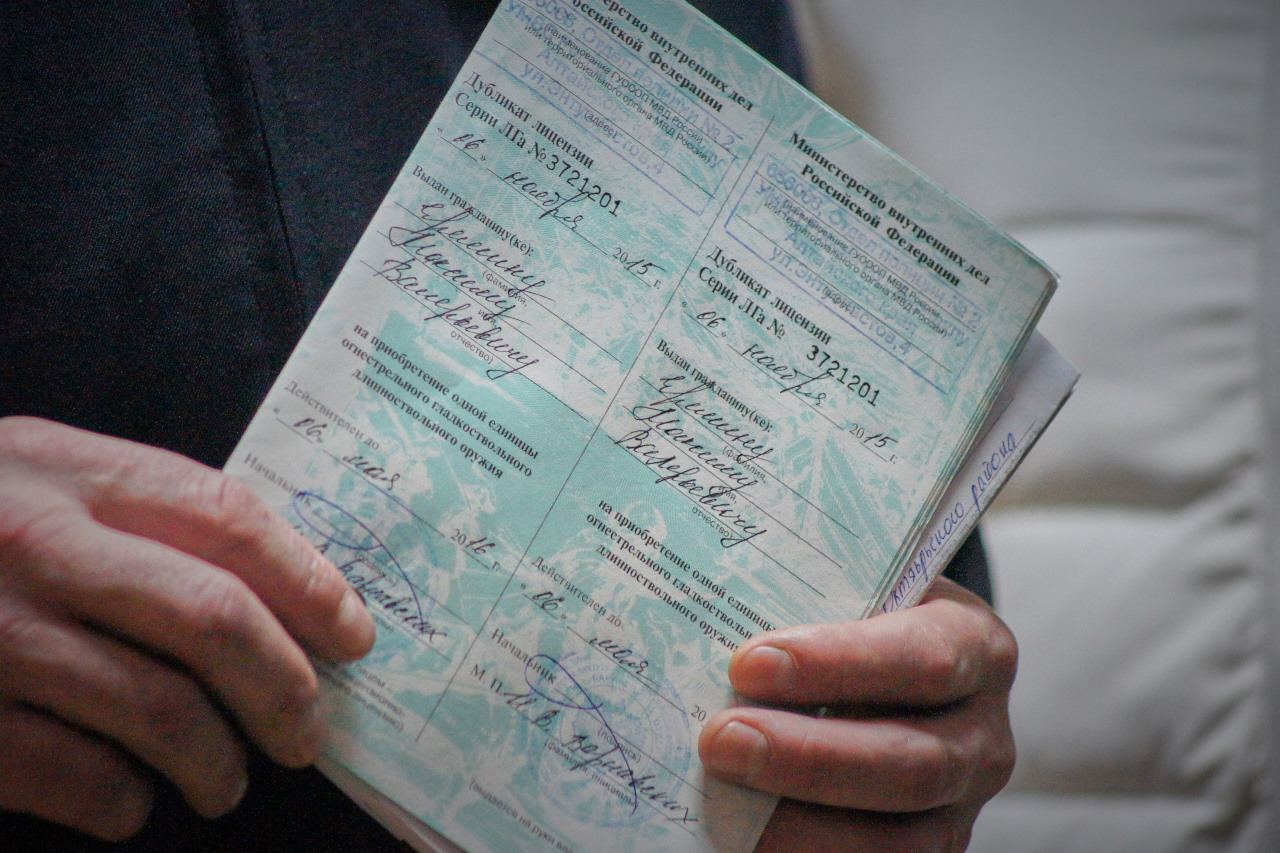 Министерство внутренних дел
Российской Федерации
656065, Отдел полиции № 2
(наименование ГУОООП МВД России,
или территориального органа МВД России)
(адрес)
ул. Энтузиастов, 4
Дубликат лицензии
Серии ЛГа № 3721201
"06" ноября 2015 г.
Выдан гражданину(ке):
Максиму
(фамилия,
имя,
Валерьевичу
отчество)
на приобретение одной единицы
огнестрельного гладкоствольного
длинноствольного оружия
Действителен до
"06" мая 2016 г.
Начальник
Министерство внутренних дел
Российской Федерации
Отдел полиции № 2
(наименование ГУОООП МВД России,
или территориального органа МВД России)
ул. Энтузиастов, 4
Дубликат лицензии
Серии ЛГа № 3721201
"06" ноября 2015 г.
Выдан гражданину(ке):
(фамилия,
Максиму
имя,
Валерьевичу
отчество)
на приобретение одной единицы
огнестрельного гладкоствольного
длинноствольного оружия
Действителен до
"06" мая 20
Начальник
М. П.
(подпись)
(фамилия, инициалы)
(выдается на руки
Октябрьского района